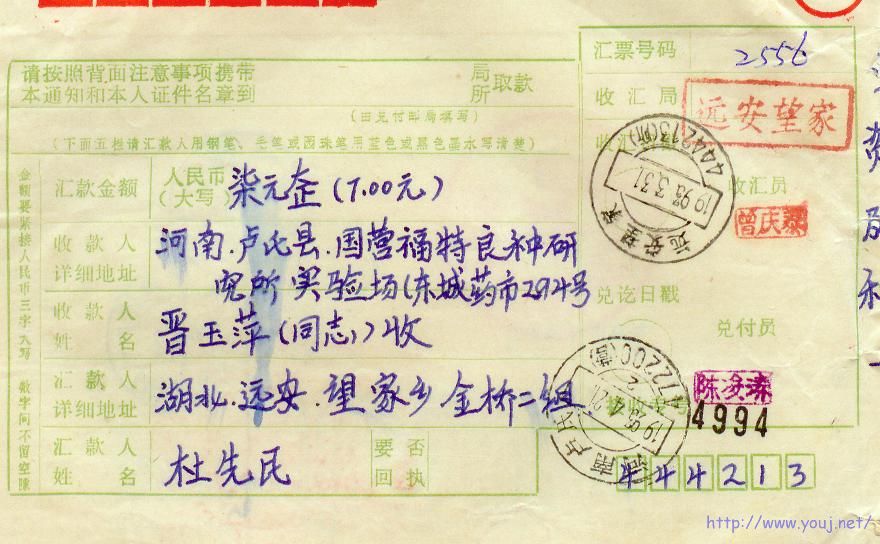 汇票号码 2556
请按照背面注意事项携带
本通知和本人证件名章到
局
所 取款
(由兑付邮局填写)
收汇局
远安望家
(下面五栏请汇款人用钢笔、毛笔或圆珠笔用蓝色或黑色墨水写清楚)
金额要紧接人民币三字大写 数字间不留空隙
汇款金额
人民币
(大写)
柒元㐀(7.00元)
444213(所)
1993.3.31
远安望家
收汇员
曾庆
收款人
详细地址
河南.卢氏县.国营福特良种研
究所实验场(东城药市294号
兑讫日戳
收款人
姓名
晋玉萍(同志)收
兑付员
汇款人
详细地址
湖北.远安.望家乡金桥二组
472200
河南卢氏
4994
汇款人
姓名
杜先民
要否
回执
444213
http://www.youj.net/